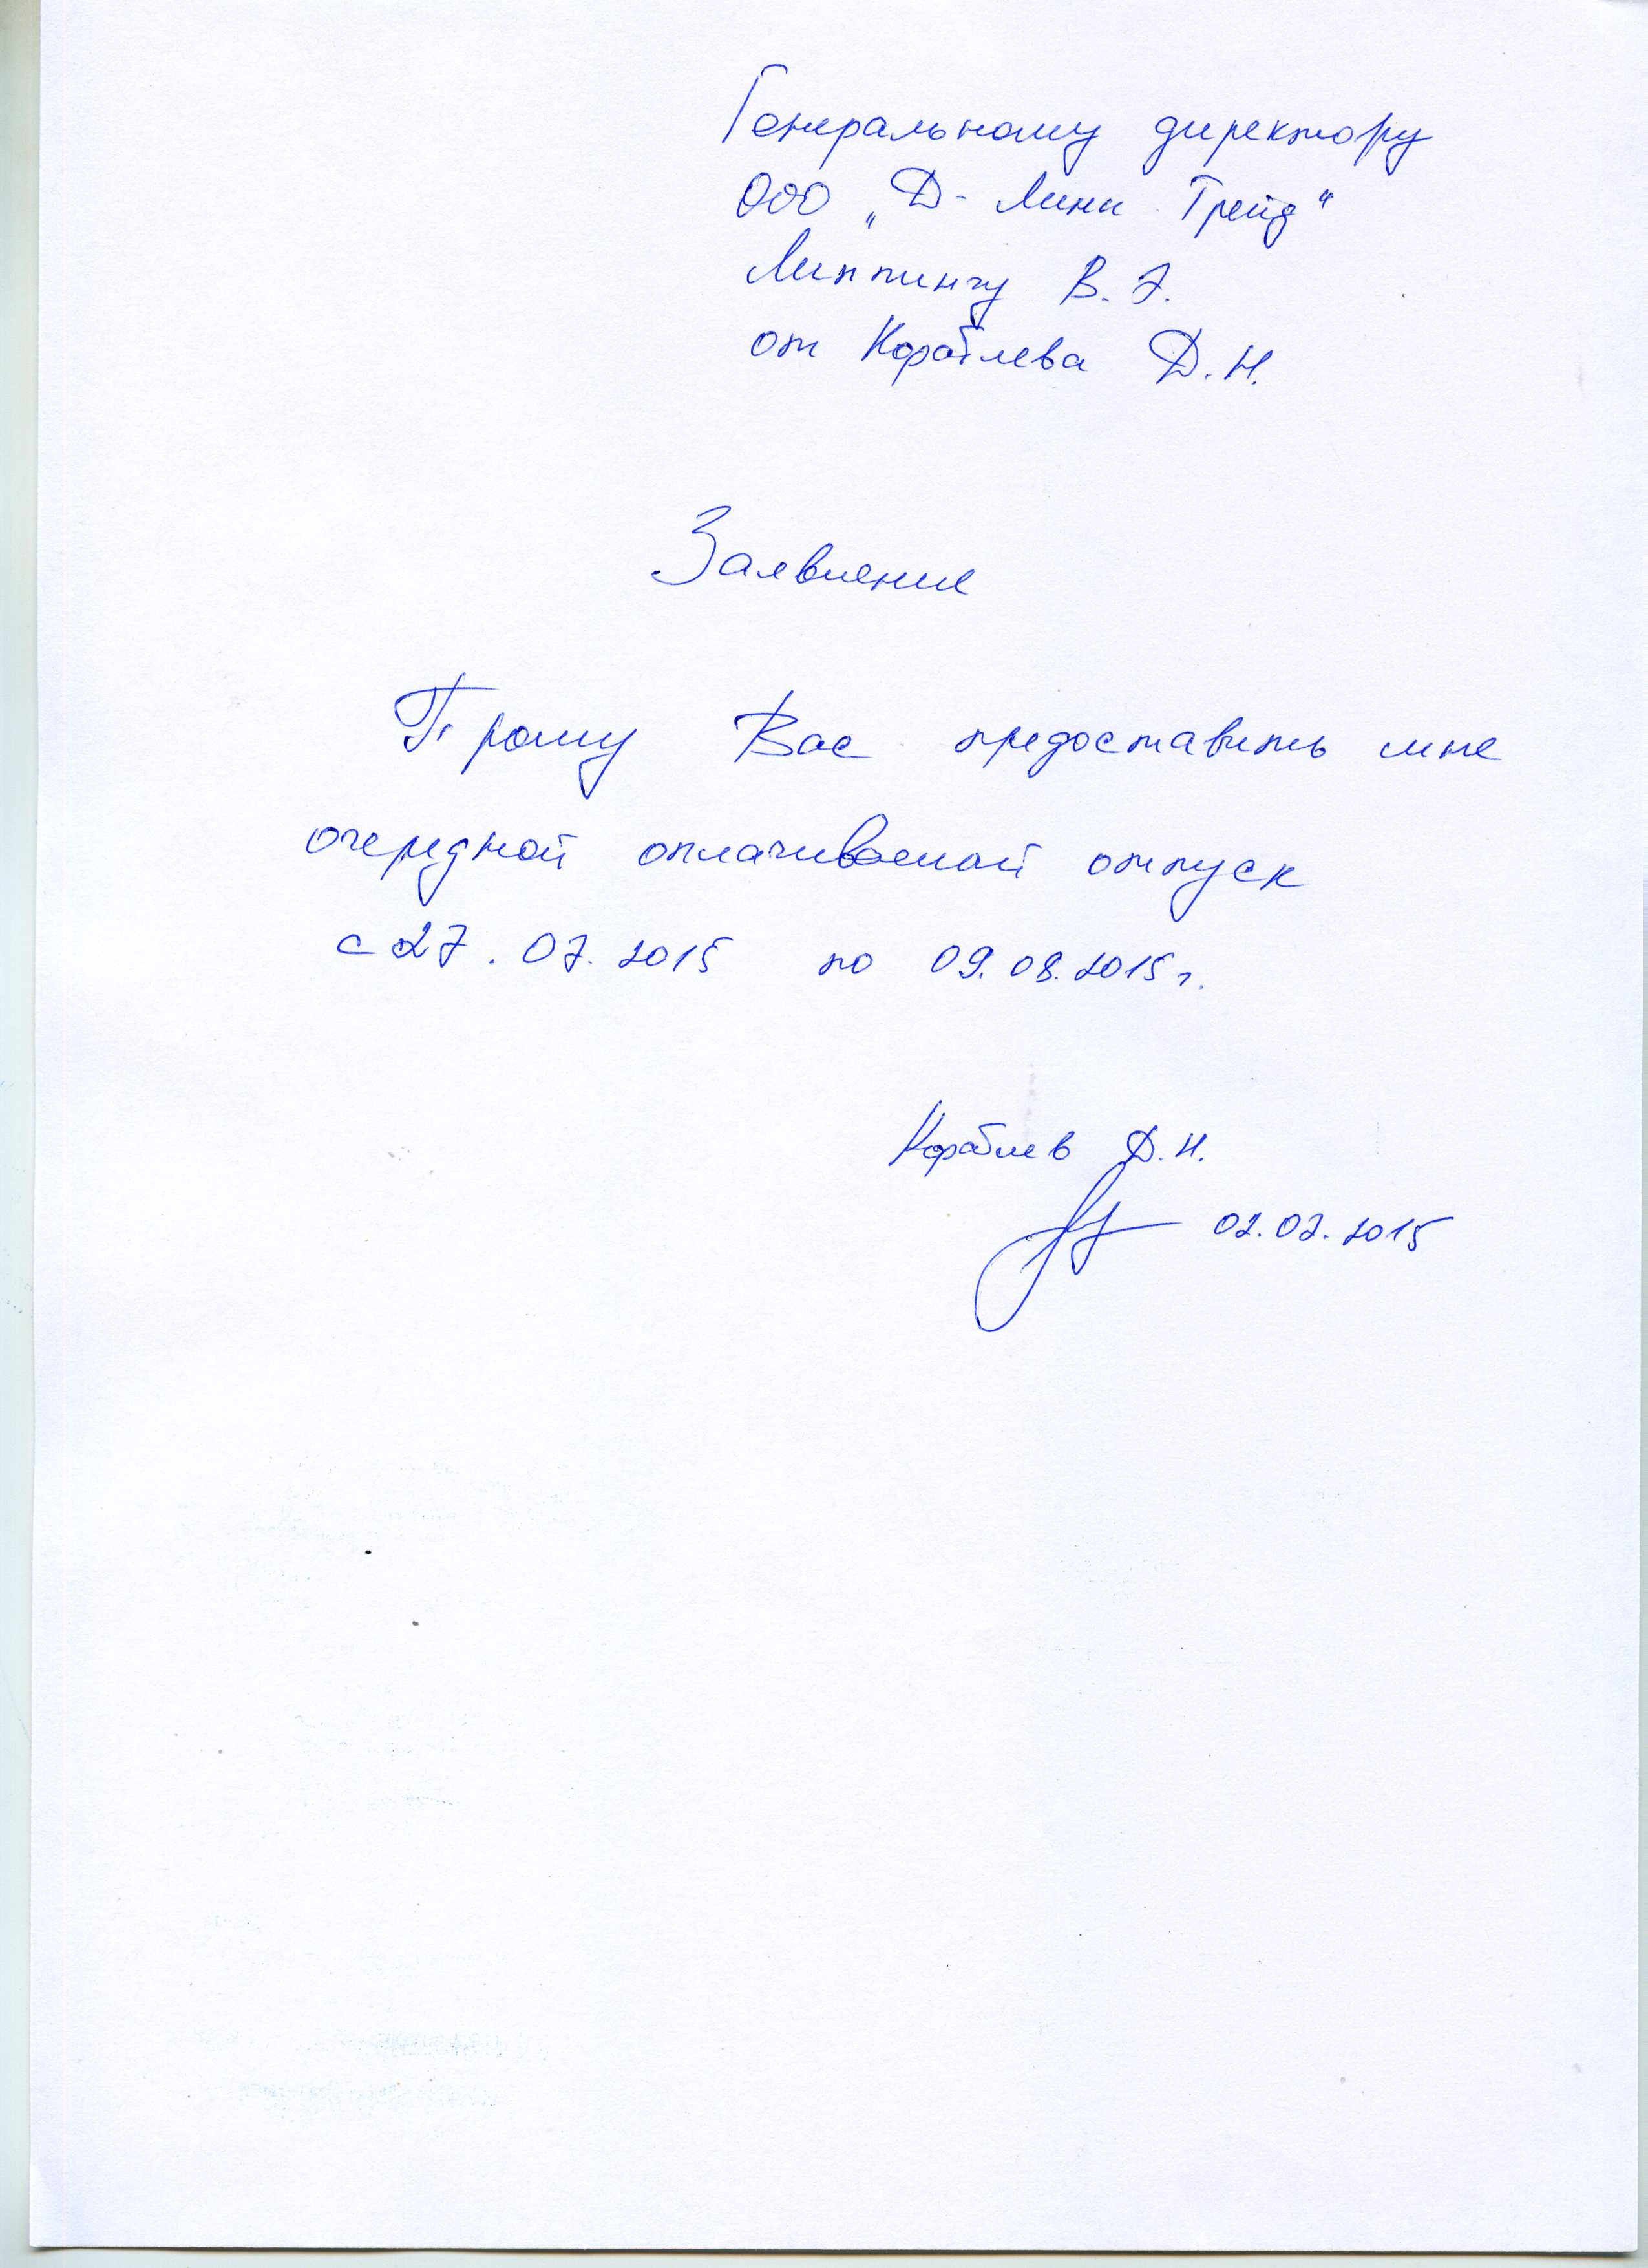 Генеральному директору
ООО „Д-Линк Трейд“
Липпингу В.Э.
от Кораблева Д.Н.
Заявление
Прошу Вас предоставить мне
очередной оплачиваемый отпуск
с 27.07.2015 по 09.08.2015 г.
Кораблев Д.Н.
02.07.2015